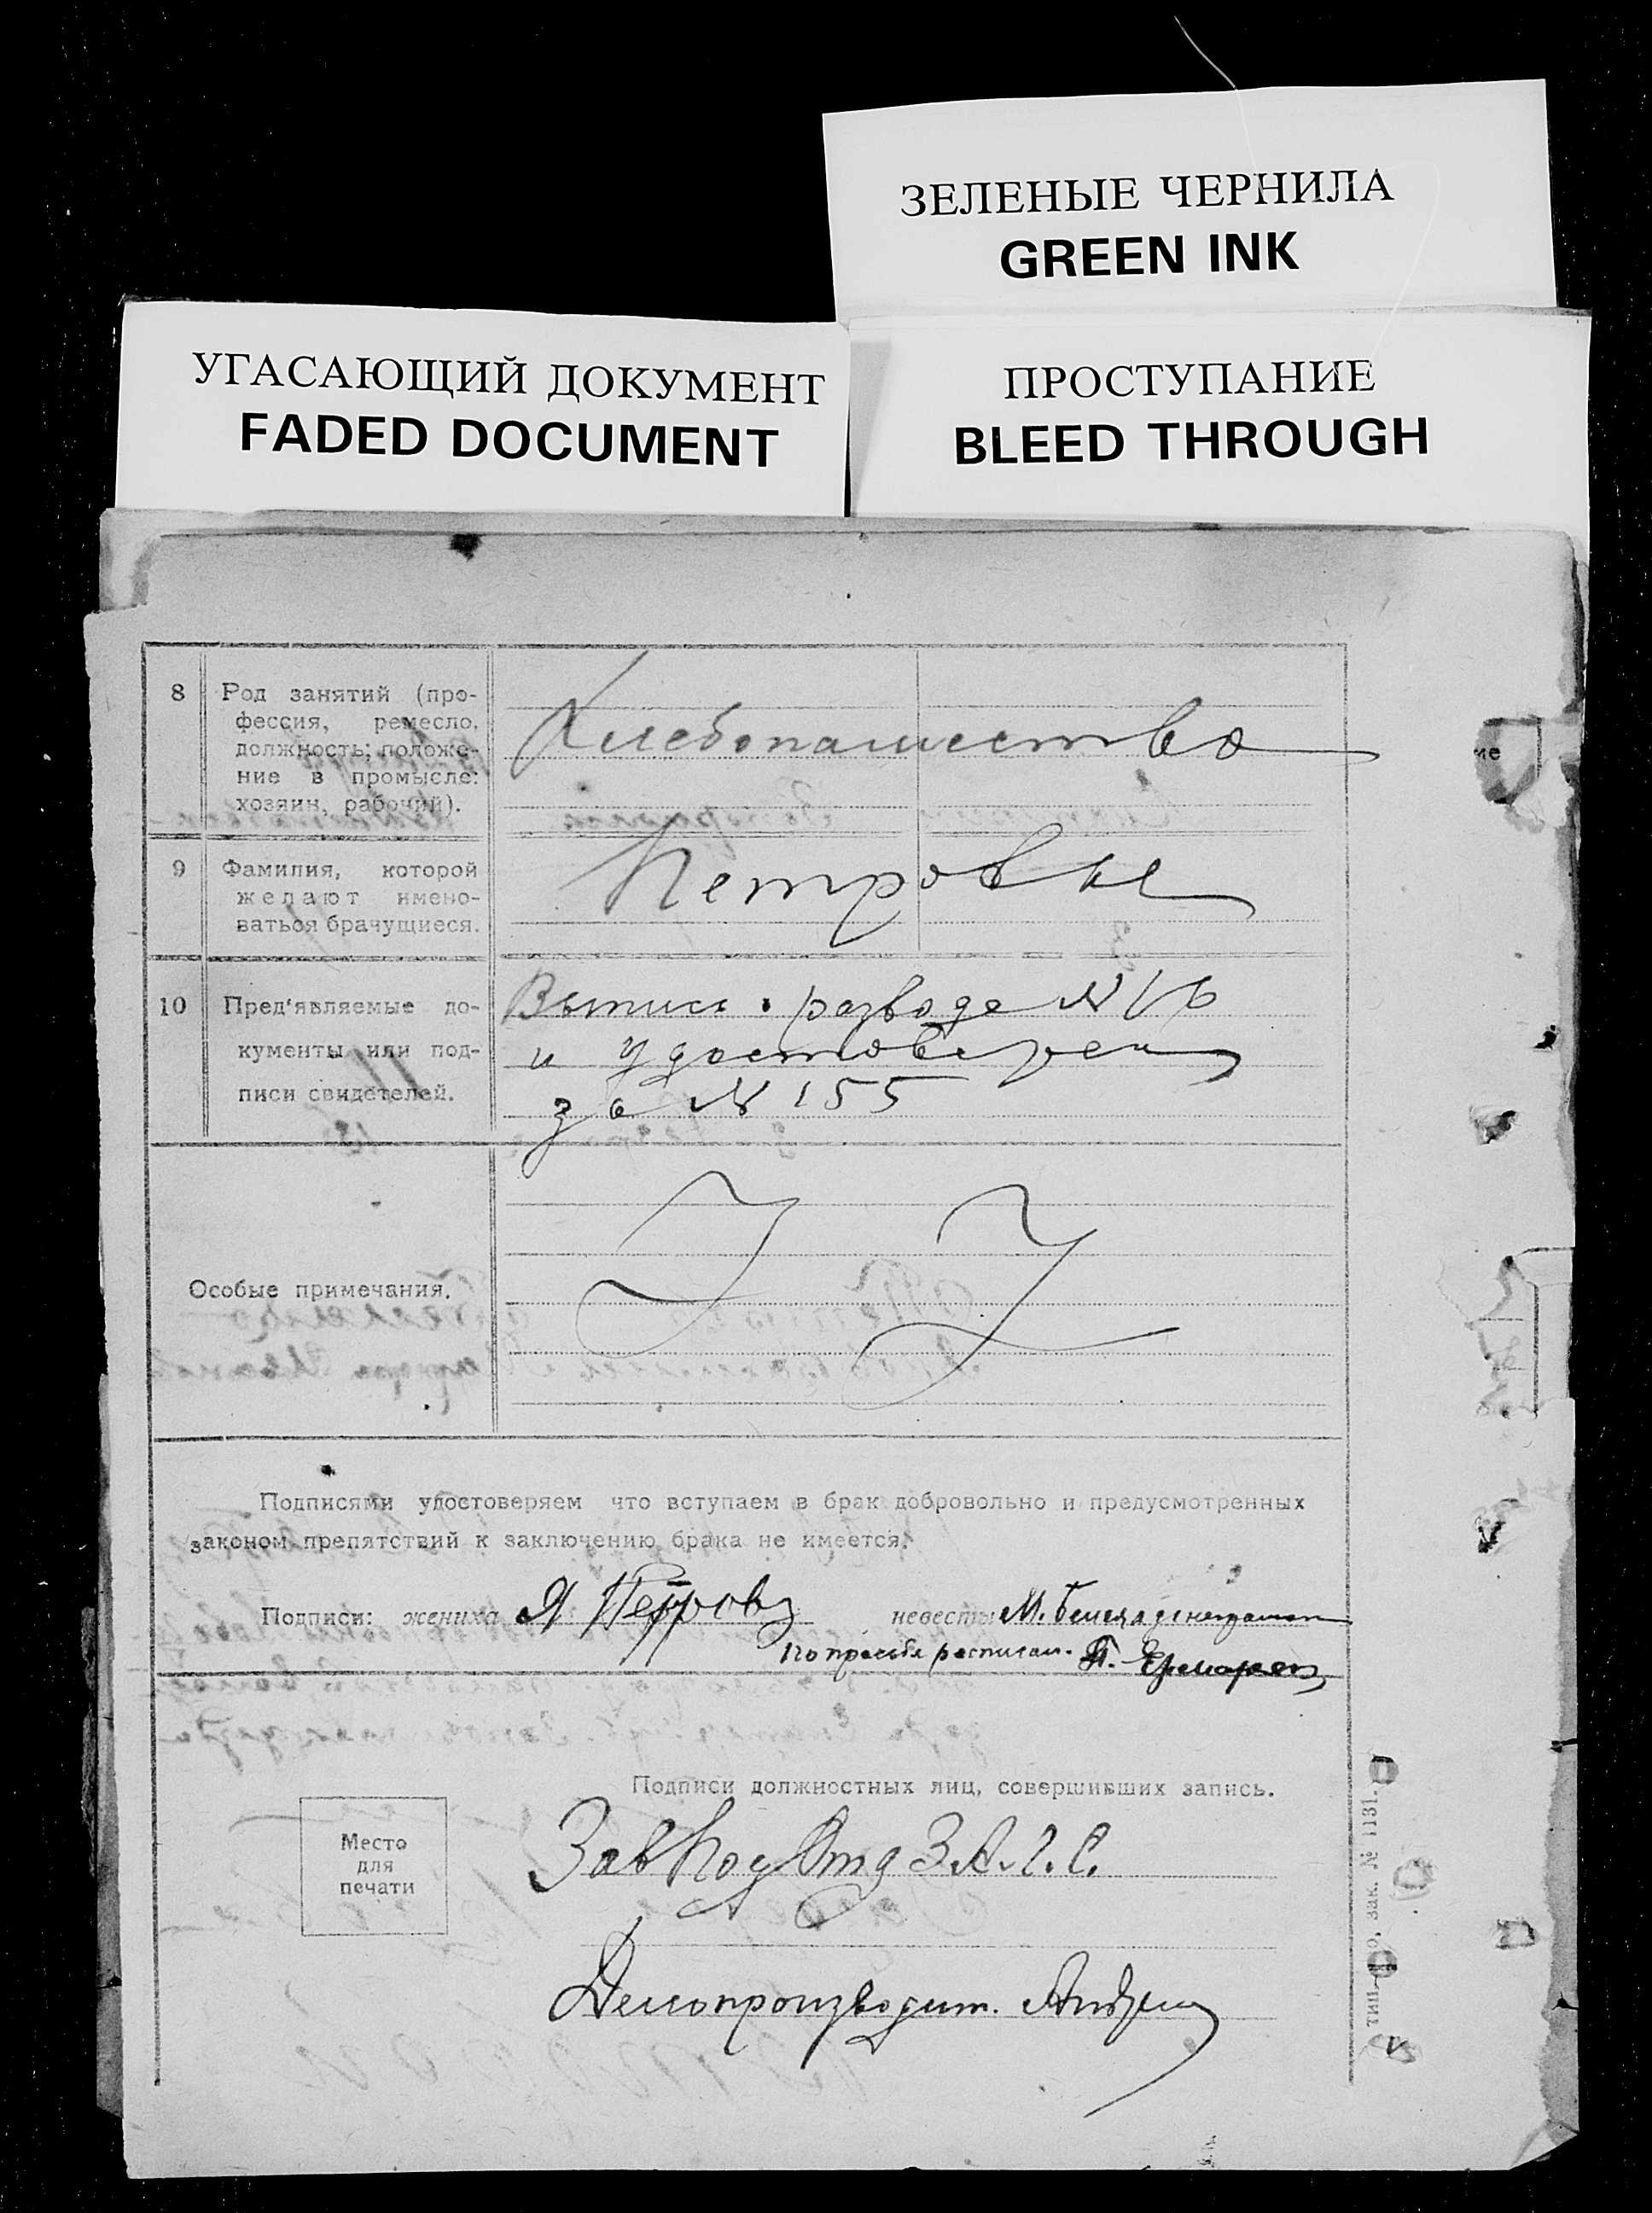 ЗЕЛЕНЫЕ ЧЕРНИЛА
GREEN INK
УГАСАЮЩИЙ ДОКУМЕНТ
FADED DOCUMENT
ПРОСТУПАНИЕ
BLEED THROUGH
8 Род занятий (про-
фессия, ремесло,
должность; положе-
ние в промысле:
хозяин, рабочий).
Хлебопашество
9 Фамилия, которой
желают имено-
ваться брачущиеся.
Петровы
10 Пред'являемые до-
кументы или под-
писи свидетелей.
Выпись о разводе № 16
и удостоверен
за № 155
Особые примечания.
Подписями удостоверяем что вступаем в брак добровольно и предусмотренных
законом препятствий к заключению брака не имеется.
Подписи: жениха Я Петровъ невесты М.
По просьбе расписал.
Подписи должностных лиц, совершивших запись.
Место
для
печати
Зав Отд З.А.Г.С.
Делопроизводит.
зак. № 1131.